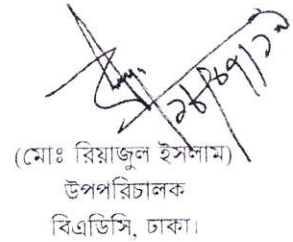 (মোঃ রিয়াজুল ইসলাম)
উপপরিচালক
বিএডিসি, ঢাকা।